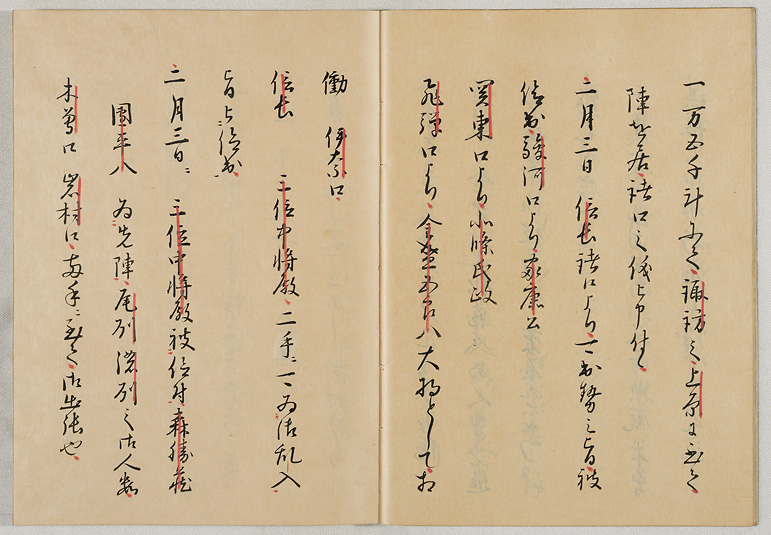 一万五千計にて諏訪之上原に至て
陣を居諸口之儀被申付
二月三日 信長諸口より可出勢之旨被
仰出駿河口より家康公
関東口より北條氏政
飛弾口より金森五郎八大将として相
働 伊奈口
信長 三位中将殿二手ニ 可為御乱入
旨被仰出
二月三日ニ 三位中将殿被仰付森勝蔵
團平八 為先陣尾州濃州之御人数
木曽口岩村口両手ニ至て御出張也